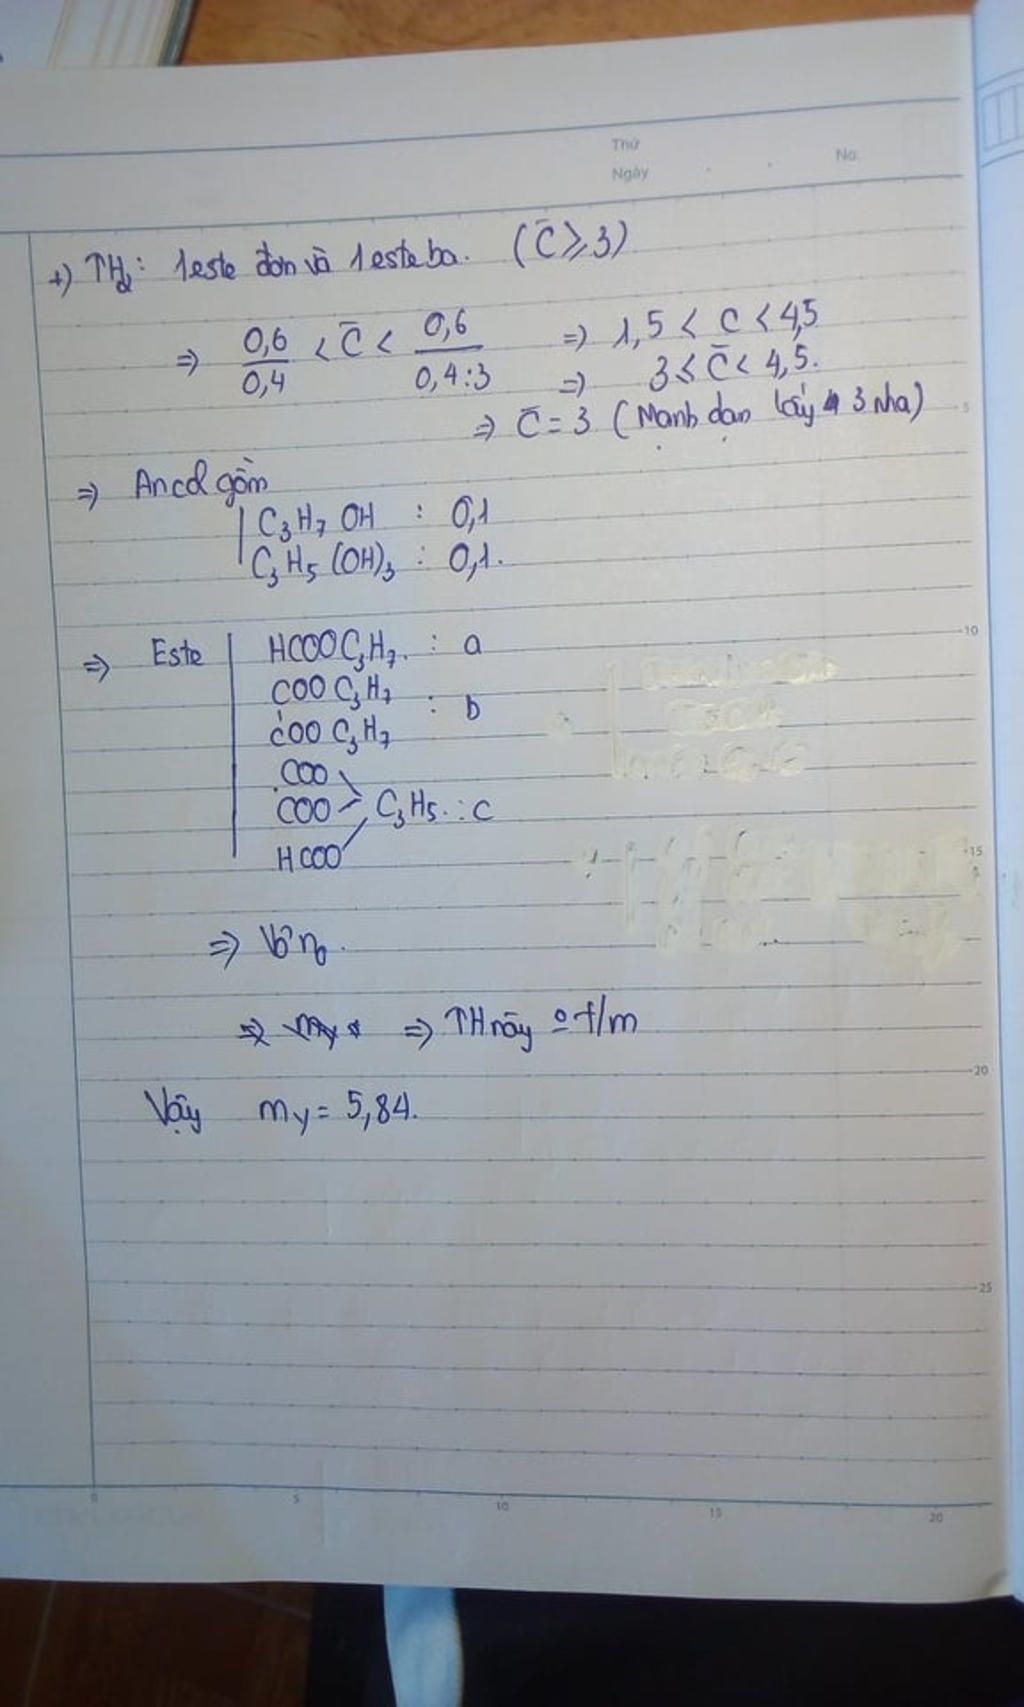 Thứ
Ngày
No.
+) TH2: 1 este đơn và 1 este ba. (C̄ ⩾ 3)
=> 0,6/0,4 < C̄ < 0,6/0,4:3 => 1,5 < C < 4,5
=> 3 ≤ C̄ < 4,5.
=> C̄ = 3 (Mạnh dạn lấy 3 nha)
=> Ancol gồm
C3H7OH : 0,1
C3H5(OH)3 : 0,1.
=> Este HCOOC3H7. : a
COOC3H7
: b
COOC3H7
COO
COO C3H5. : C
HCOO
=> Vô no.
=> TH này o t/m
Vậy my = 5,84.
5
10
15
20
25
0 5 10 15 20